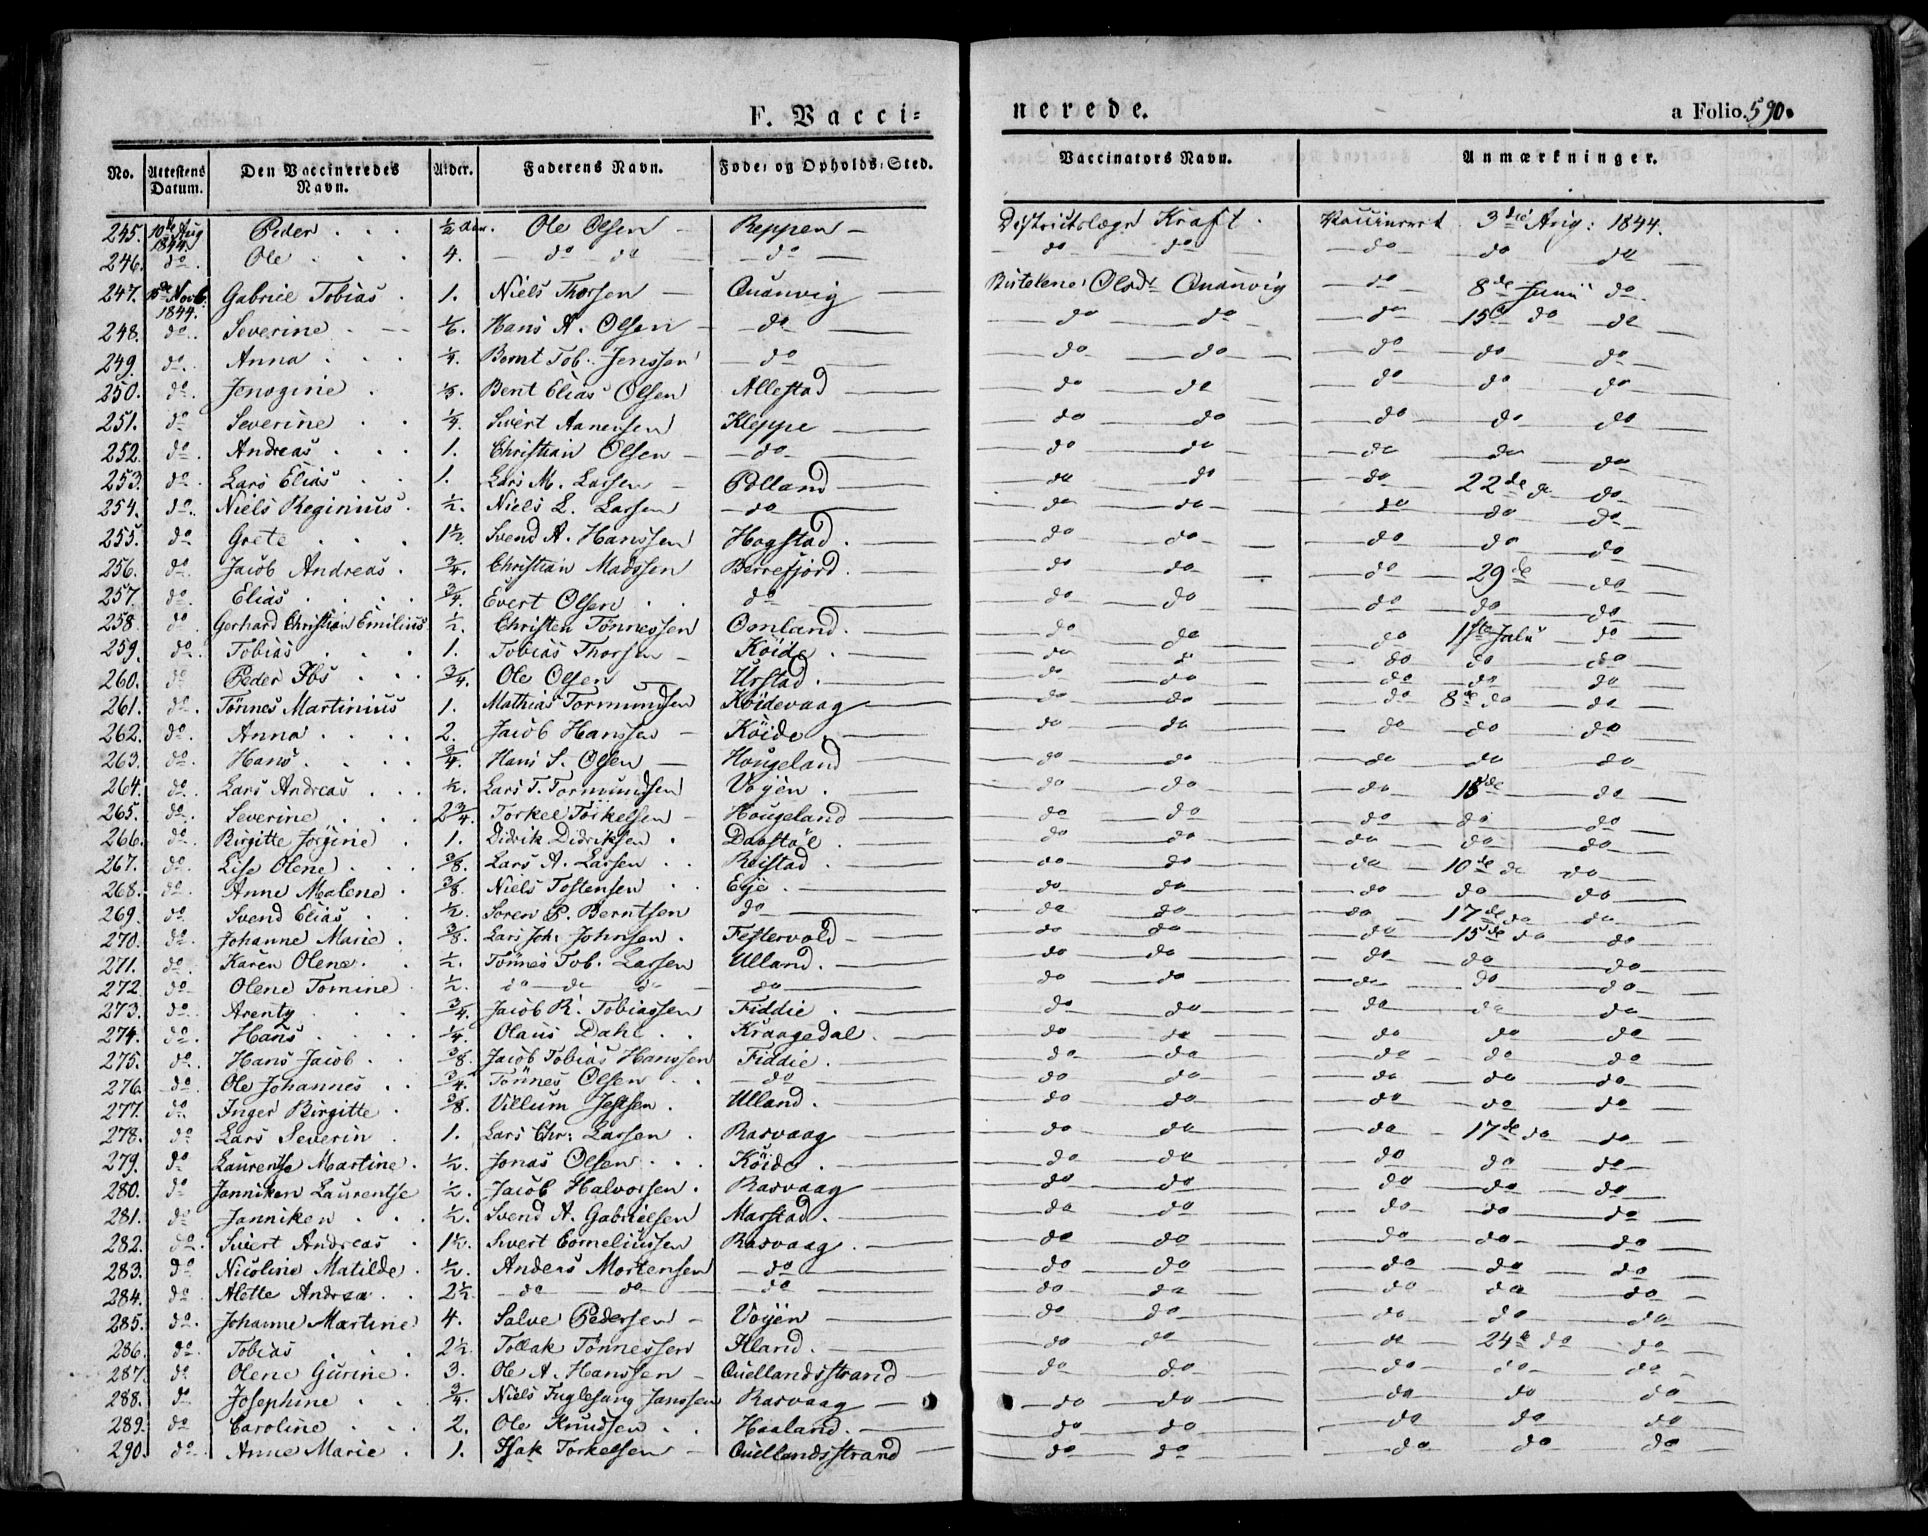 F. Vacci=
nerede.
a Folio. 590.
No. Attestens Datum. Den Vaccineredes Navn. Alder. Faderens Navn. Føde= og Opholds=Sted. Vaccinators Navn. Anmærkninger.
245. 10de Aug 1844. Peder ½ Ole Olsen Reppen Districtslæge Kraft. Vaccineret 3die Aug: 1844.
246. do. Ole 4. do do do do do do do do
247. 15de Novb. 1844. Gabriel Tobias 1. Niels Thorsen Quanvig Olsdr Quanvig do 8de Juni do.
248. do. Severine 1/6. Hans A. Olsen do do do do 15de do do
249. do. Anna ¼. Bernt Tob. Jenssen do do do do do do
250. do. Jensgine ⅓. Bent Elias Olsen Allestad do do do do do
251. do Severine ¼. Sivert Aanensen Kleppe do do do do do
252. do. Andreas 1. Christian Olsen do do do do do do
253. do. Lars Elias 1. Lars M. Larsen Polland do do do 22de do do
254. do. Niels Reginius ½. Niels L. Larsen do do do do do do
255. do Grete 1½. Svend A. Hanssen Hogstad. do do do do do
256. do. Jacob Andreas ¾. Christian Madssen Berrefjord do do do 29de do
257. do. Elias ¾. Evert Olsen do do do do do do
258. do Gerhard Christian Emilius ½. Christen Tønnessen Omland. do do do 1ste Juli do
259. do. Tobias 1. Tobias Thorsen Köide. do do do do do
260. do Peder Ibs ¾. Ole Olsen Urstad. do do do do do
261. do. Tønnes Martinius 1. Mathias Tormundsen Köidevaag do do do 8de do do
262. do. Anna 2. Jacob Hanssen Köide do do do do do
263. do. Hans ¾. Hans S. Olsen Hougeland do do do do do
264. do Lars Andreas ½. Lars T. Tormundsen Vöÿen. do do do 15de do
265. do. Severine 2¾. Torkel Torkelsen Hougeland do do do do do
266. do. Birgitte Jørgine 1. Didrik Didriksen Davstöl do do do do do
267. do. Lise Olene ⅜. Lars A. Larsen Roistad. do do do 10de do do
268. do. Anne Malene ⅜. Niels Tostensen Eÿe. do do do do do
269. do Svend Elias ½. Soren P. Berntsen do do do do 17de do do
270. do. Johanne Marie ⅜. Lars Joh: Johnsen Festervold do do do 15de do do
271. do. Karen Olene. ½. Tönnes Tob. Larsen Ulland. do do do do do
272 do Olene Tomine ½. do do do do do do do do do
273. do. Arenty ¾. Jacob R. Tobiassen Fiddie. do do do do do
274. do. Hans ¼. Olaus Dahl Kraagedal. do do do do do
275. do. Hans Jacob ⅜. Jacob Tobias Hanssen Fiddie. do do do do do
276. do. Ole Johannes ¾. Tönnes Olsen do do do do do do
277. do. Inger Birgitte ⅜. Villum Jessen. Ulland. do do do do do
278. do Lars Severin 1. Lars Chr: Larsen Rasvaag do do do 17de do do
279. do Laurentse Martine. ½. Jonas Olsen Köide do do do do do
280. do Janniken Laurentse ½. Jacob Halvorsen. Rasvaag do do do do do
281. do Janniken ½. Svend A. Gabrielsen Marstad. do do do do do
282. do. Sivert Andreas 1½. Sivert Corneliussen Rasvaag. do do do do do
283. do Nicoline Matilde ½. Anders Mortensen do do do do do do
284. do. Alette Andrea 2½. do do do do do do do do
285. do. Johanne Martine 4. Salve Pedersen Vöÿen do do do do do
286. do. Tobias 2½. Tollak Tönnessen Iland. do do do 24de do do
287. do Olene Gurine. 3. Ole A. Hanssen Quellandsstrand do do do do do
288. do Josephine ¾. Niels Fuglesang Janssen Rasvaag do do do do do
289. do Caroline 2. Ole Knudsen Haaland. do do do do do
290. do. Anne Marie 1. Isak Torkelsen Quellandsstrand do do do do do